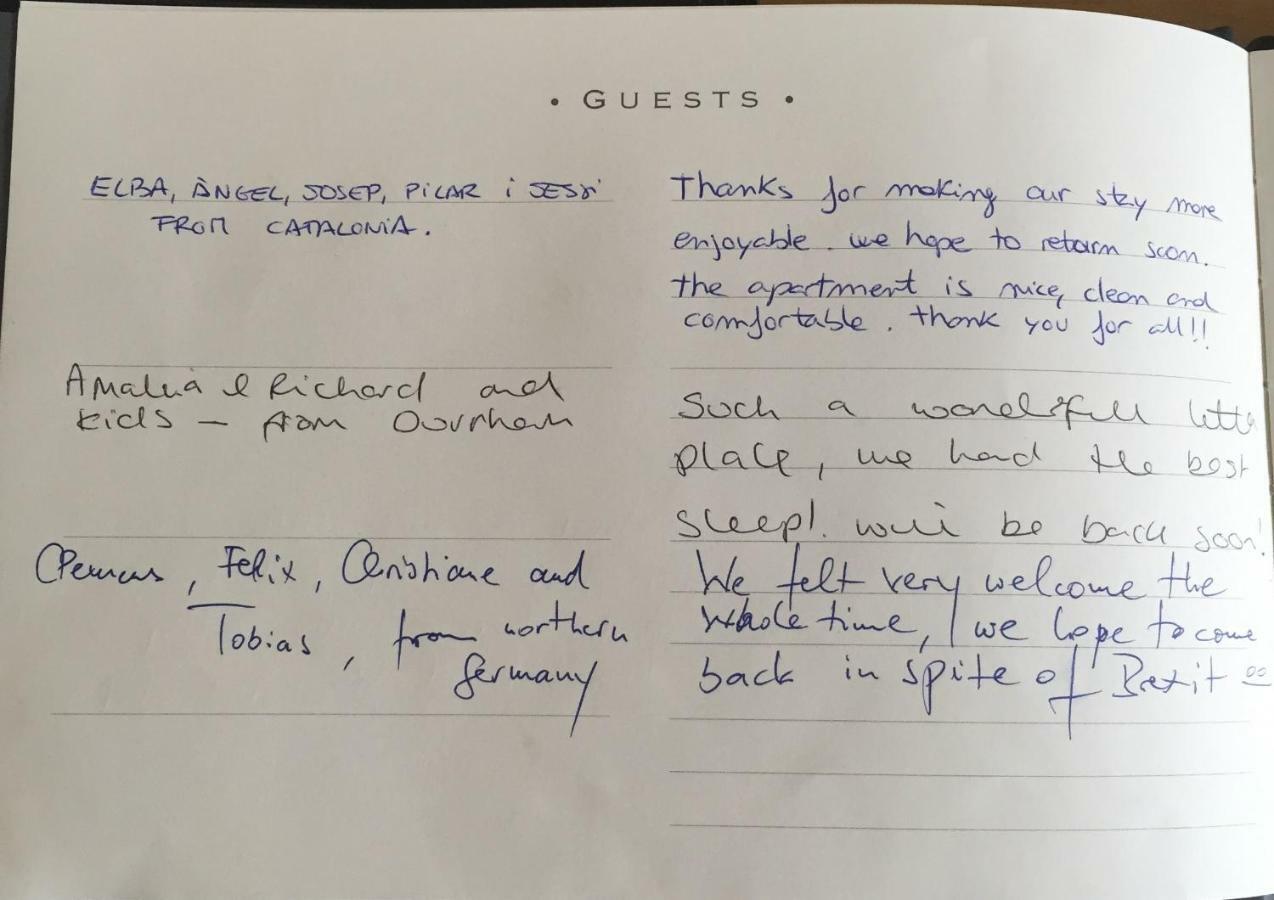 • GUESTS •
ELBA, ÀNGEL, JOSEP, PILAR i JESSI
FROM CATALONIA.
Thanks for making our stay more
enjoyable. we hope to return soon.
the apartment is nice, clean and
comfortable. thank you for all!!
Amalia & Richard and
kids – from Durham
Such a wonderful little
place, we had the best
sleep! will be back soon!
, Felix, Christiane and
Tobias, from northern
Germany
We felt very welcome the
whole time, we hope to come
back in spite of Brexit